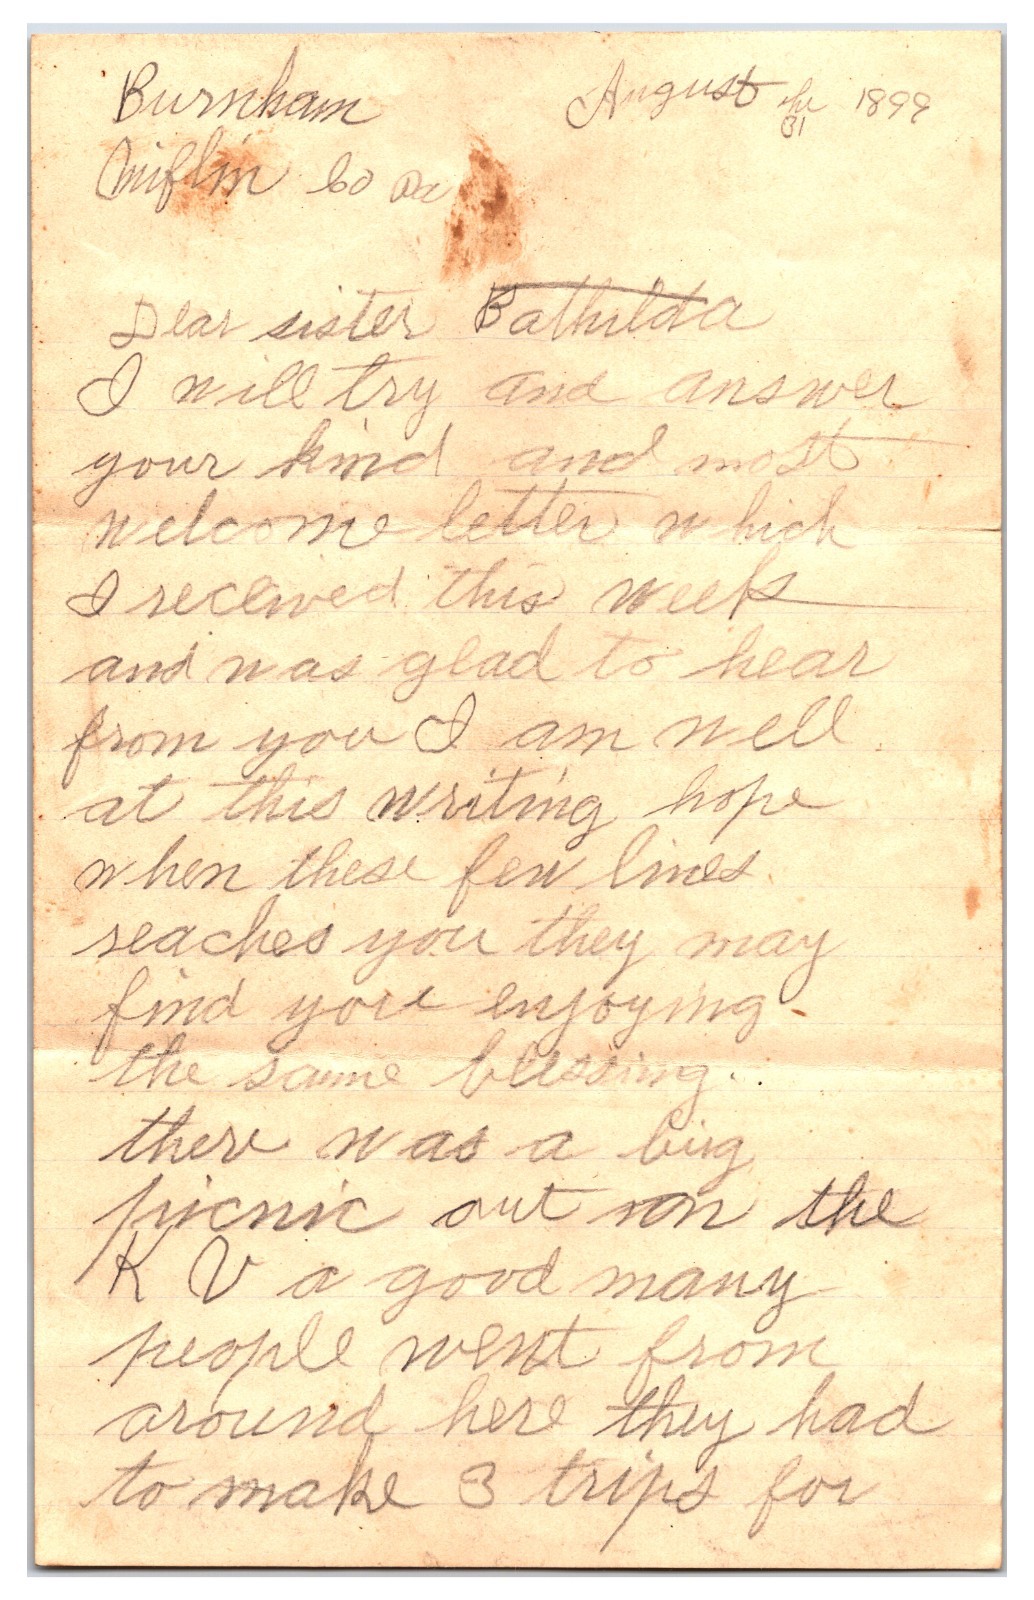 Burnham August the 31 1899
Mifflin Co Pa
Dear sister Bathilda
I will try and answer
your kind and most
welcome letter which
I received this week
and was glad to hear
from you I am well
at this writing hope
when these few lines
reaches you they may
find you enjoying
the same blessing.
there was a big
picnic out on the
K V a good many
people went from
around here they had
to make 3 trips for